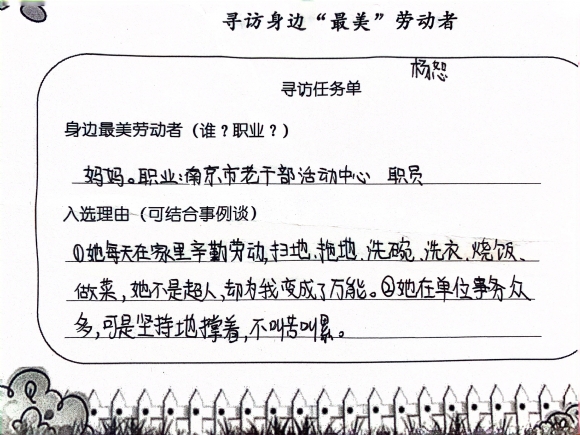 寻访身边“最美”劳动者
杨恕
寻访任务单
身边最美劳动者（谁？职业？）
妈妈。职业：南京市老干部活动中心 职员
入选理由（可结合事例谈）
①她每天在家里辛勤劳动,扫地、拖地、洗碗、洗衣、烧饭、
做菜，她不是超人,却为我变成了万能。②她在单位事务众
多,可是坚持地撑着,不叫苦叫累。